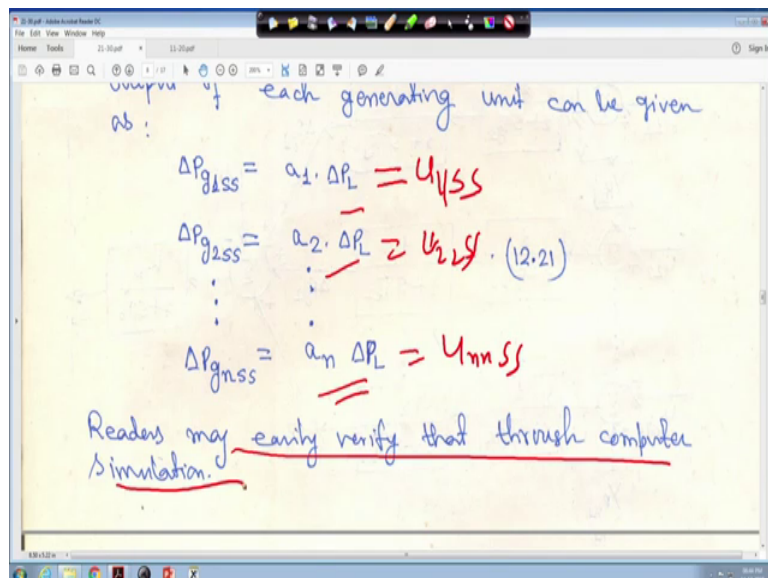 21-30.pdf - Adobe Acrobat Reader DC
File Edit View Window Help
Home Tools 21-30.pdf × 11-20.pdf Sign In
output of each generating unit can be given
as:
ΔPg1ss = a1 . ΔPL = U11ss
ΔPg2ss = a2 . ΔPL = U22ss . (12.21)
⋮ ⋮
ΔPgnss = an ΔPL = Unnss
Readers may easily verify that through computer
simulation.